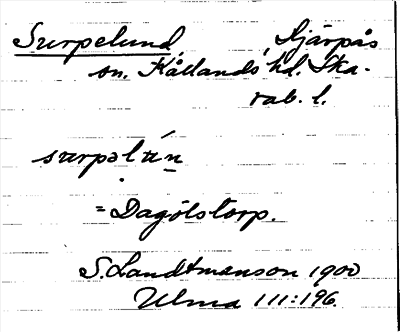 Surpelund, Sjärpås
sn. Kållands hd. Ska-
rab. l.
surpəlún
= Dagölstorp.
S. Landtmanson 1900
Ulma 111:196.